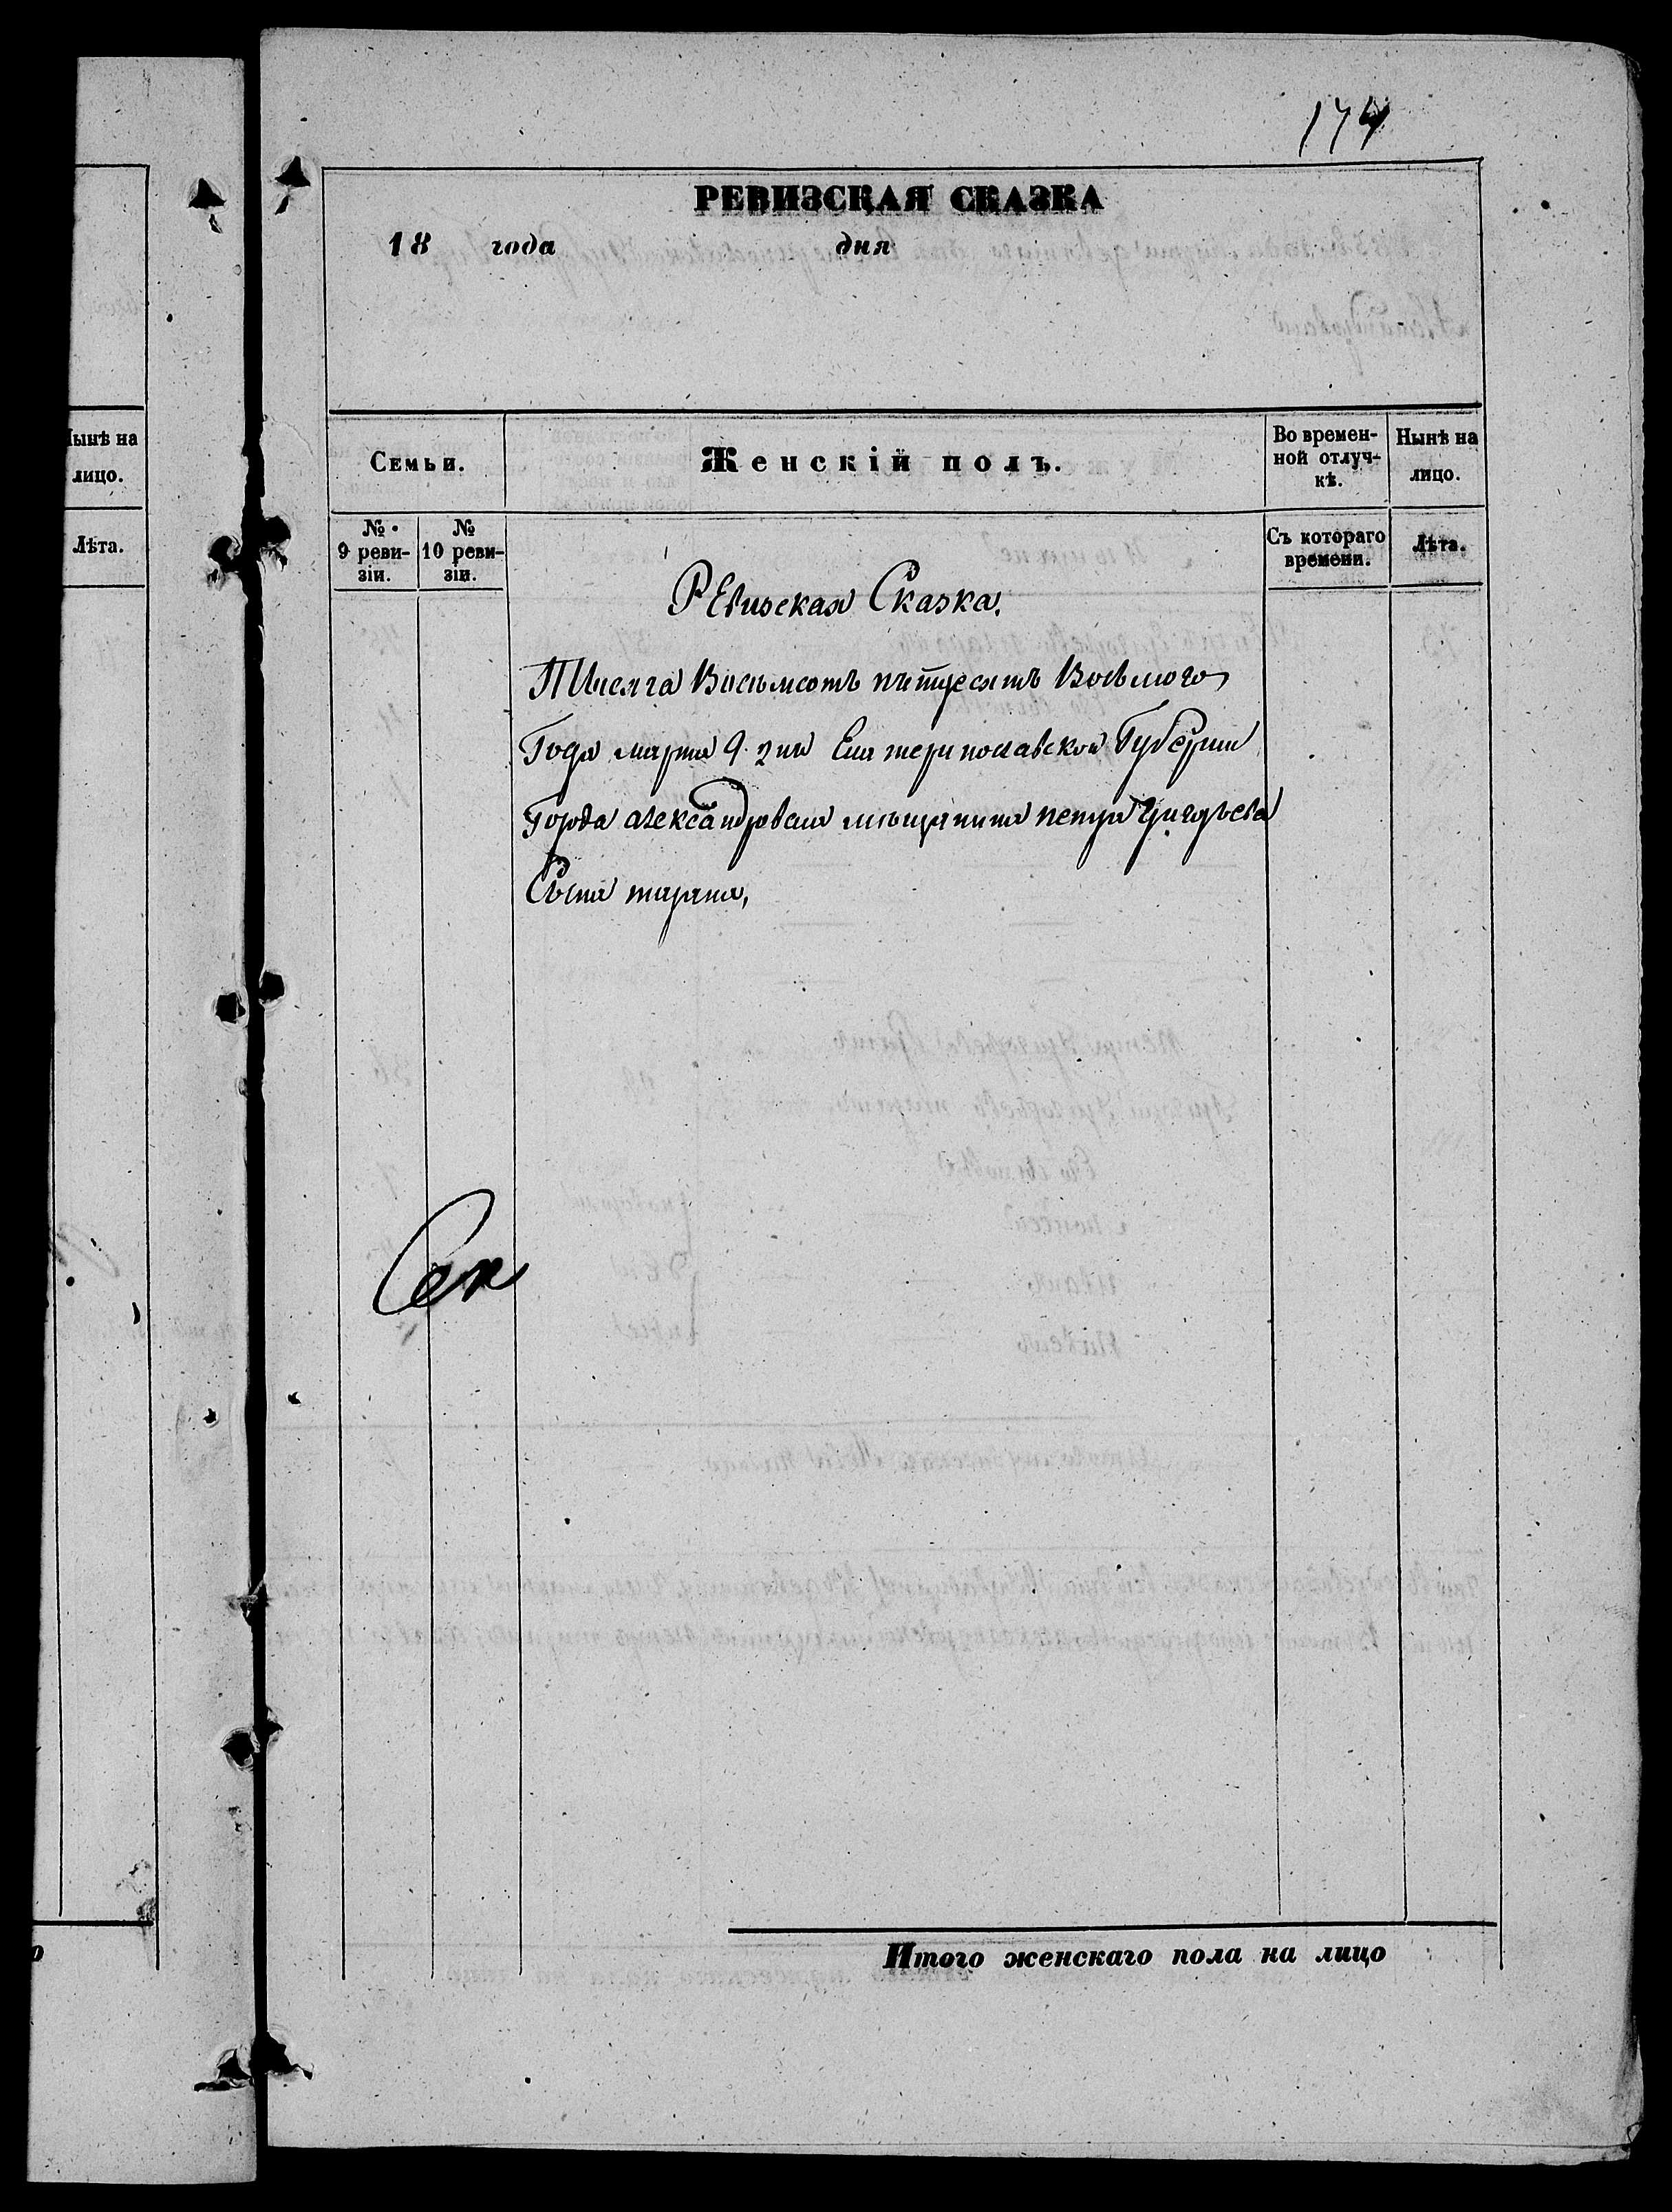 174
РЕВИЗСКАЯ СКАЗКА
18 года дня
Нынѣ на
лицо.
Лѣта.
Семьи.
Женскій полъ.
Во времен-
ной отлуч-
кѣ.
Нынѣ на
лицо.
№
9 реви-
зіи.
№
10 реви-
зіи.
Съ котораго
времени.
Лѣта.
РЕвизская Сказка.
Тысяча Восьмсотъ пятдесятъ Восьмого
Года марта 9 дня Екатеринославской Губерніи
Города александровска мещанина петра Григорьева
Сына тарана,
Сек
Итого женскаго пола на лицо